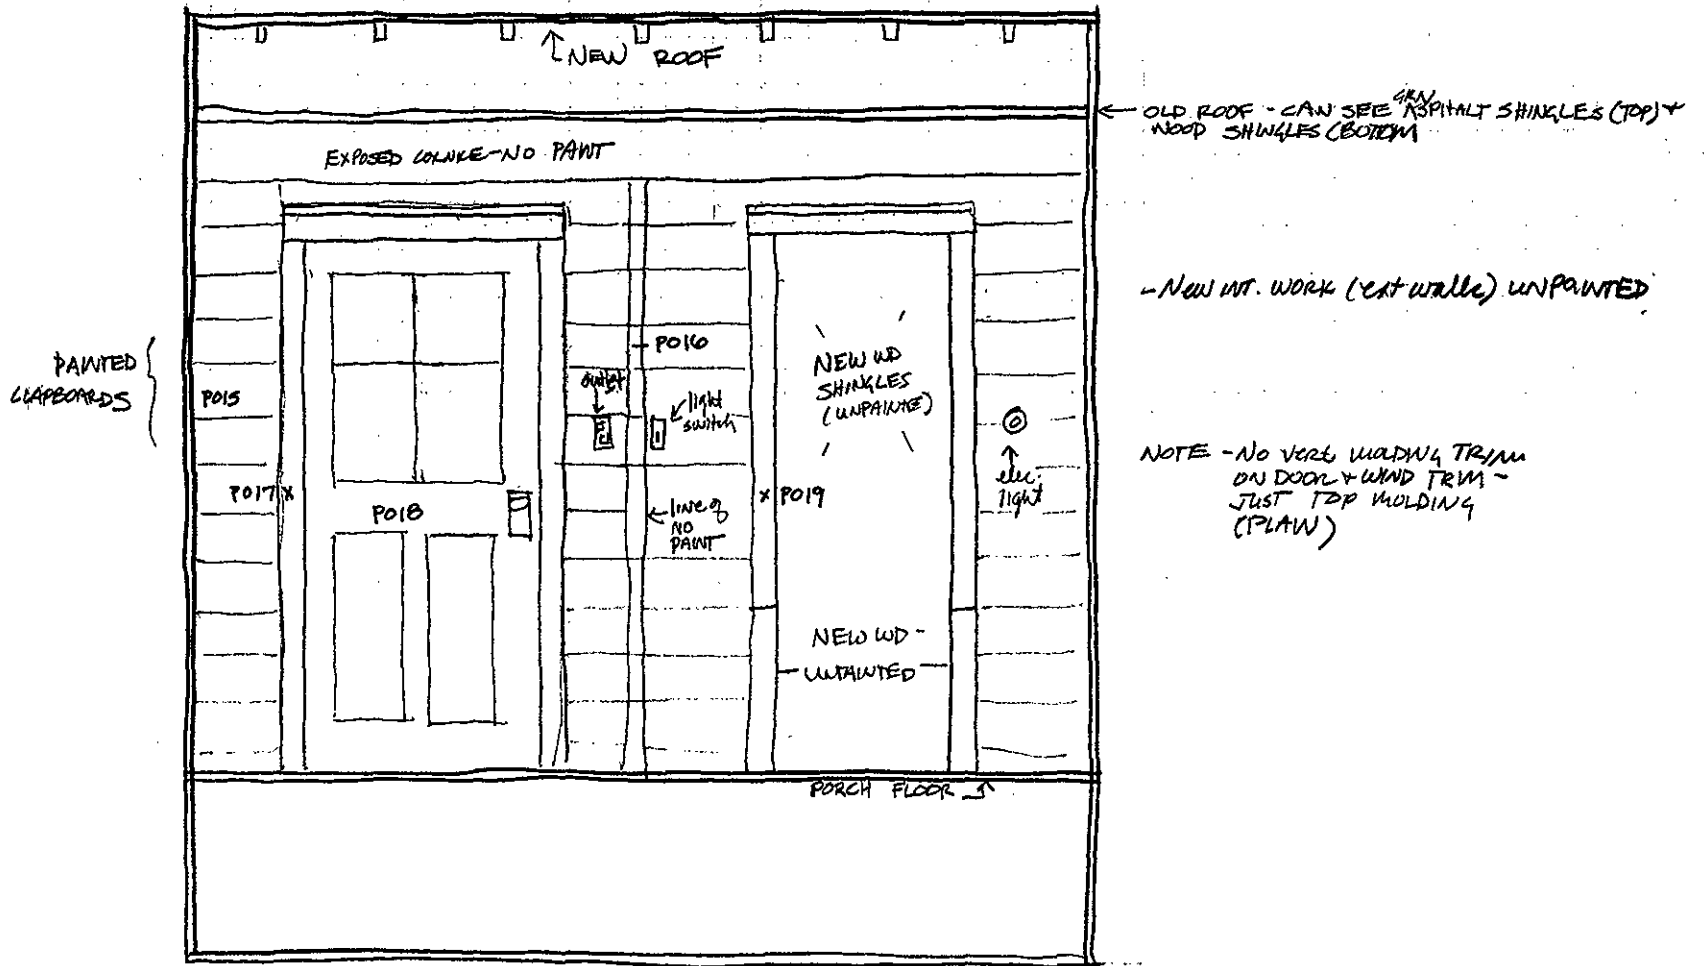 NEW ROOF
OLD ROOF - CAN SEE GRN ASPHALT SHINGLES (TOP) +
WOOD SHINGLES (BOTTOM
EXPOSED CORNICE - NO PAINT
- NEW INT. WORK (ext walls) UNPAINTED
PAINTED
CLAPBOARDS
P015
P016
outlet
light
switch
NEW WD
SHINGLES
(UNPAINTE)
elec.
light
NOTE - NO VERT MOLDING TRIM
ON DOOR + WIND TRIM -
JUST TOP MOLDING
(PLAIN)
P017
P018
line of
NO
PAINT
P019
NEW WD -
UNPAINTED
PORCH FLOOR